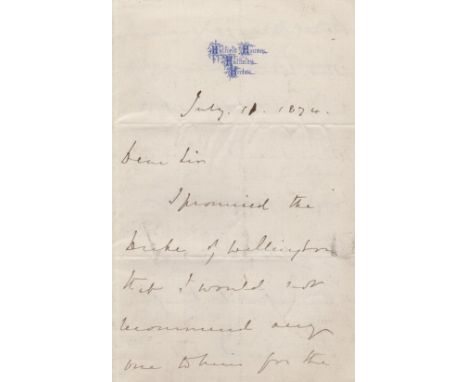 Hatfield House,
Hatfield,
Herts.
July. 11. 1874.
Dear Sir
I promised the
Duke of Wellington
that I would not
recommend any
one to him for the